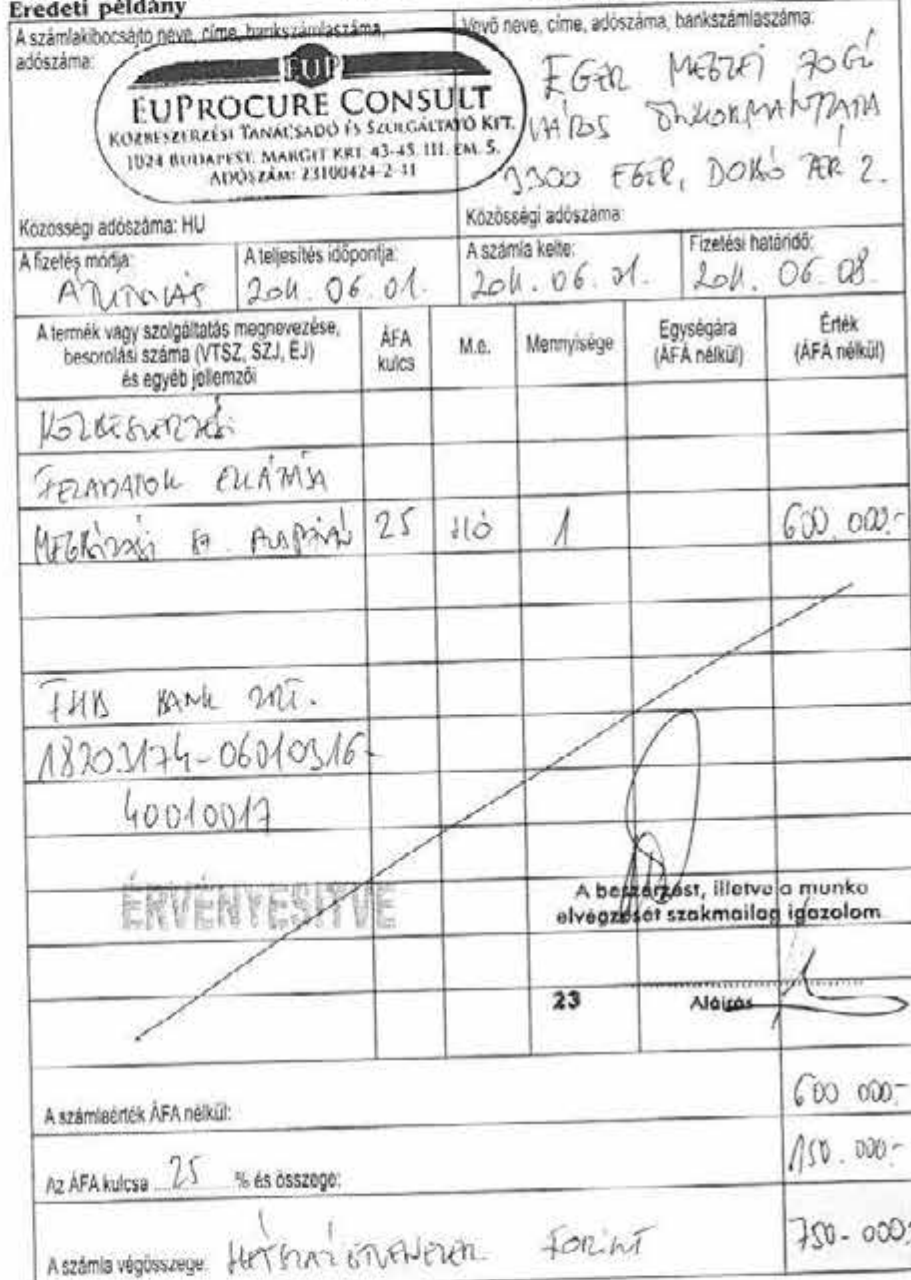 Eredeti példány
A számlakibocsájtó neve, címe, bankszámlaszáma, adószáma:
EUP
EUPROCURE CONSULT
KÖZBESZERZÉSI TANÁCSADÓ ÉS SZOLGÁLTATÓ KFT.
1024 BUDAPEST, MARGIT KRT. 43-45. III. EM. 5.
ADÓSZÁM: 23100424-2-41
Közösségi adószáma: HU
Vevő neve, címe, adószáma, bankszámlaszáma:
EGER MEGYEI JOGÚ
VÁROS ÖNKORMÁNYZATA
3300 EGER, DOBÓ TÉR 2.
Közösségi adószáma:
A fizetés módja:
ÁTUTALÁS
A teljesítés időpontja:
2011. 06. 01.
A számla kelte:
2011. 06. 01.
Fizetési határidő:
2011. 06. 08.
A termék vagy szolgáltatás megnevezése,
besorolási száma (VTSZ, SZJ, ÉJ)
és egyéb jellemzői
ÁFA
kulcs
M.e.
Mennyisége
Egységára
(ÁFA nélkül)
Érték
(ÁFA nélkül)
KÖZBESZERZÉSI
FELADATOK ELLÁTÁSA
MEGBÍZÁSI ALAPJÁN 25 HÓ 1 600.000.-
FHB BANK ZRT.
18203174-06010316-
40010017
ÉRVÉNYESÍTVE
A beszerzést, illetve a munka
elvégzését szakmailag igazolom
23 Aláírás
A számlaérték ÁFA nélkül: 600 000,-
Az ÁFA kulcsa 25 % és összege: 150.000,-
A számla végösszege: HÉTSZÁZÖTVENEZER FORINT 750.000,-